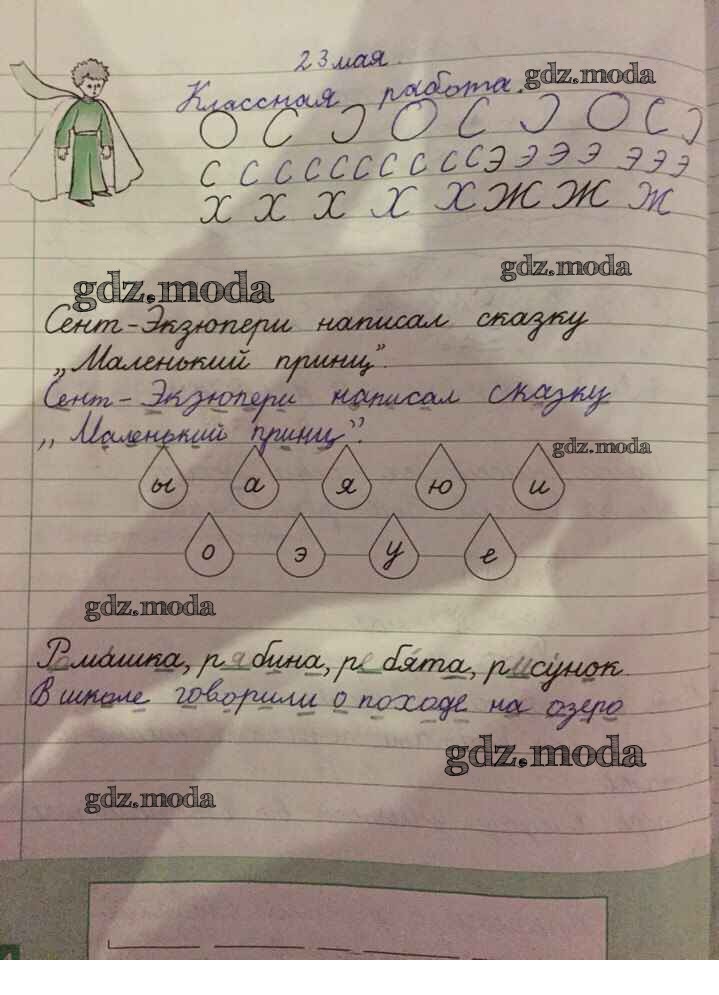 23 мая.
Классная работа. gdz.moda
О С Э О С Э О С Э
с с с с с с с с с э э э э э э э
Х Х Х Х Х Ж Ж Ж
gdz.moda gdz.moda
Сент-Экзюпери написал сказку
„Маленький принц".
Сент-Экзюпери написал сказку
„Маленький принц".
gdz.moda
ы а я ю и
о э у е
gdz.moda
Ромашка, рябина, ребята, рисунок
В школе говорили о походе на озеро
gdz.moda
gdz.moda